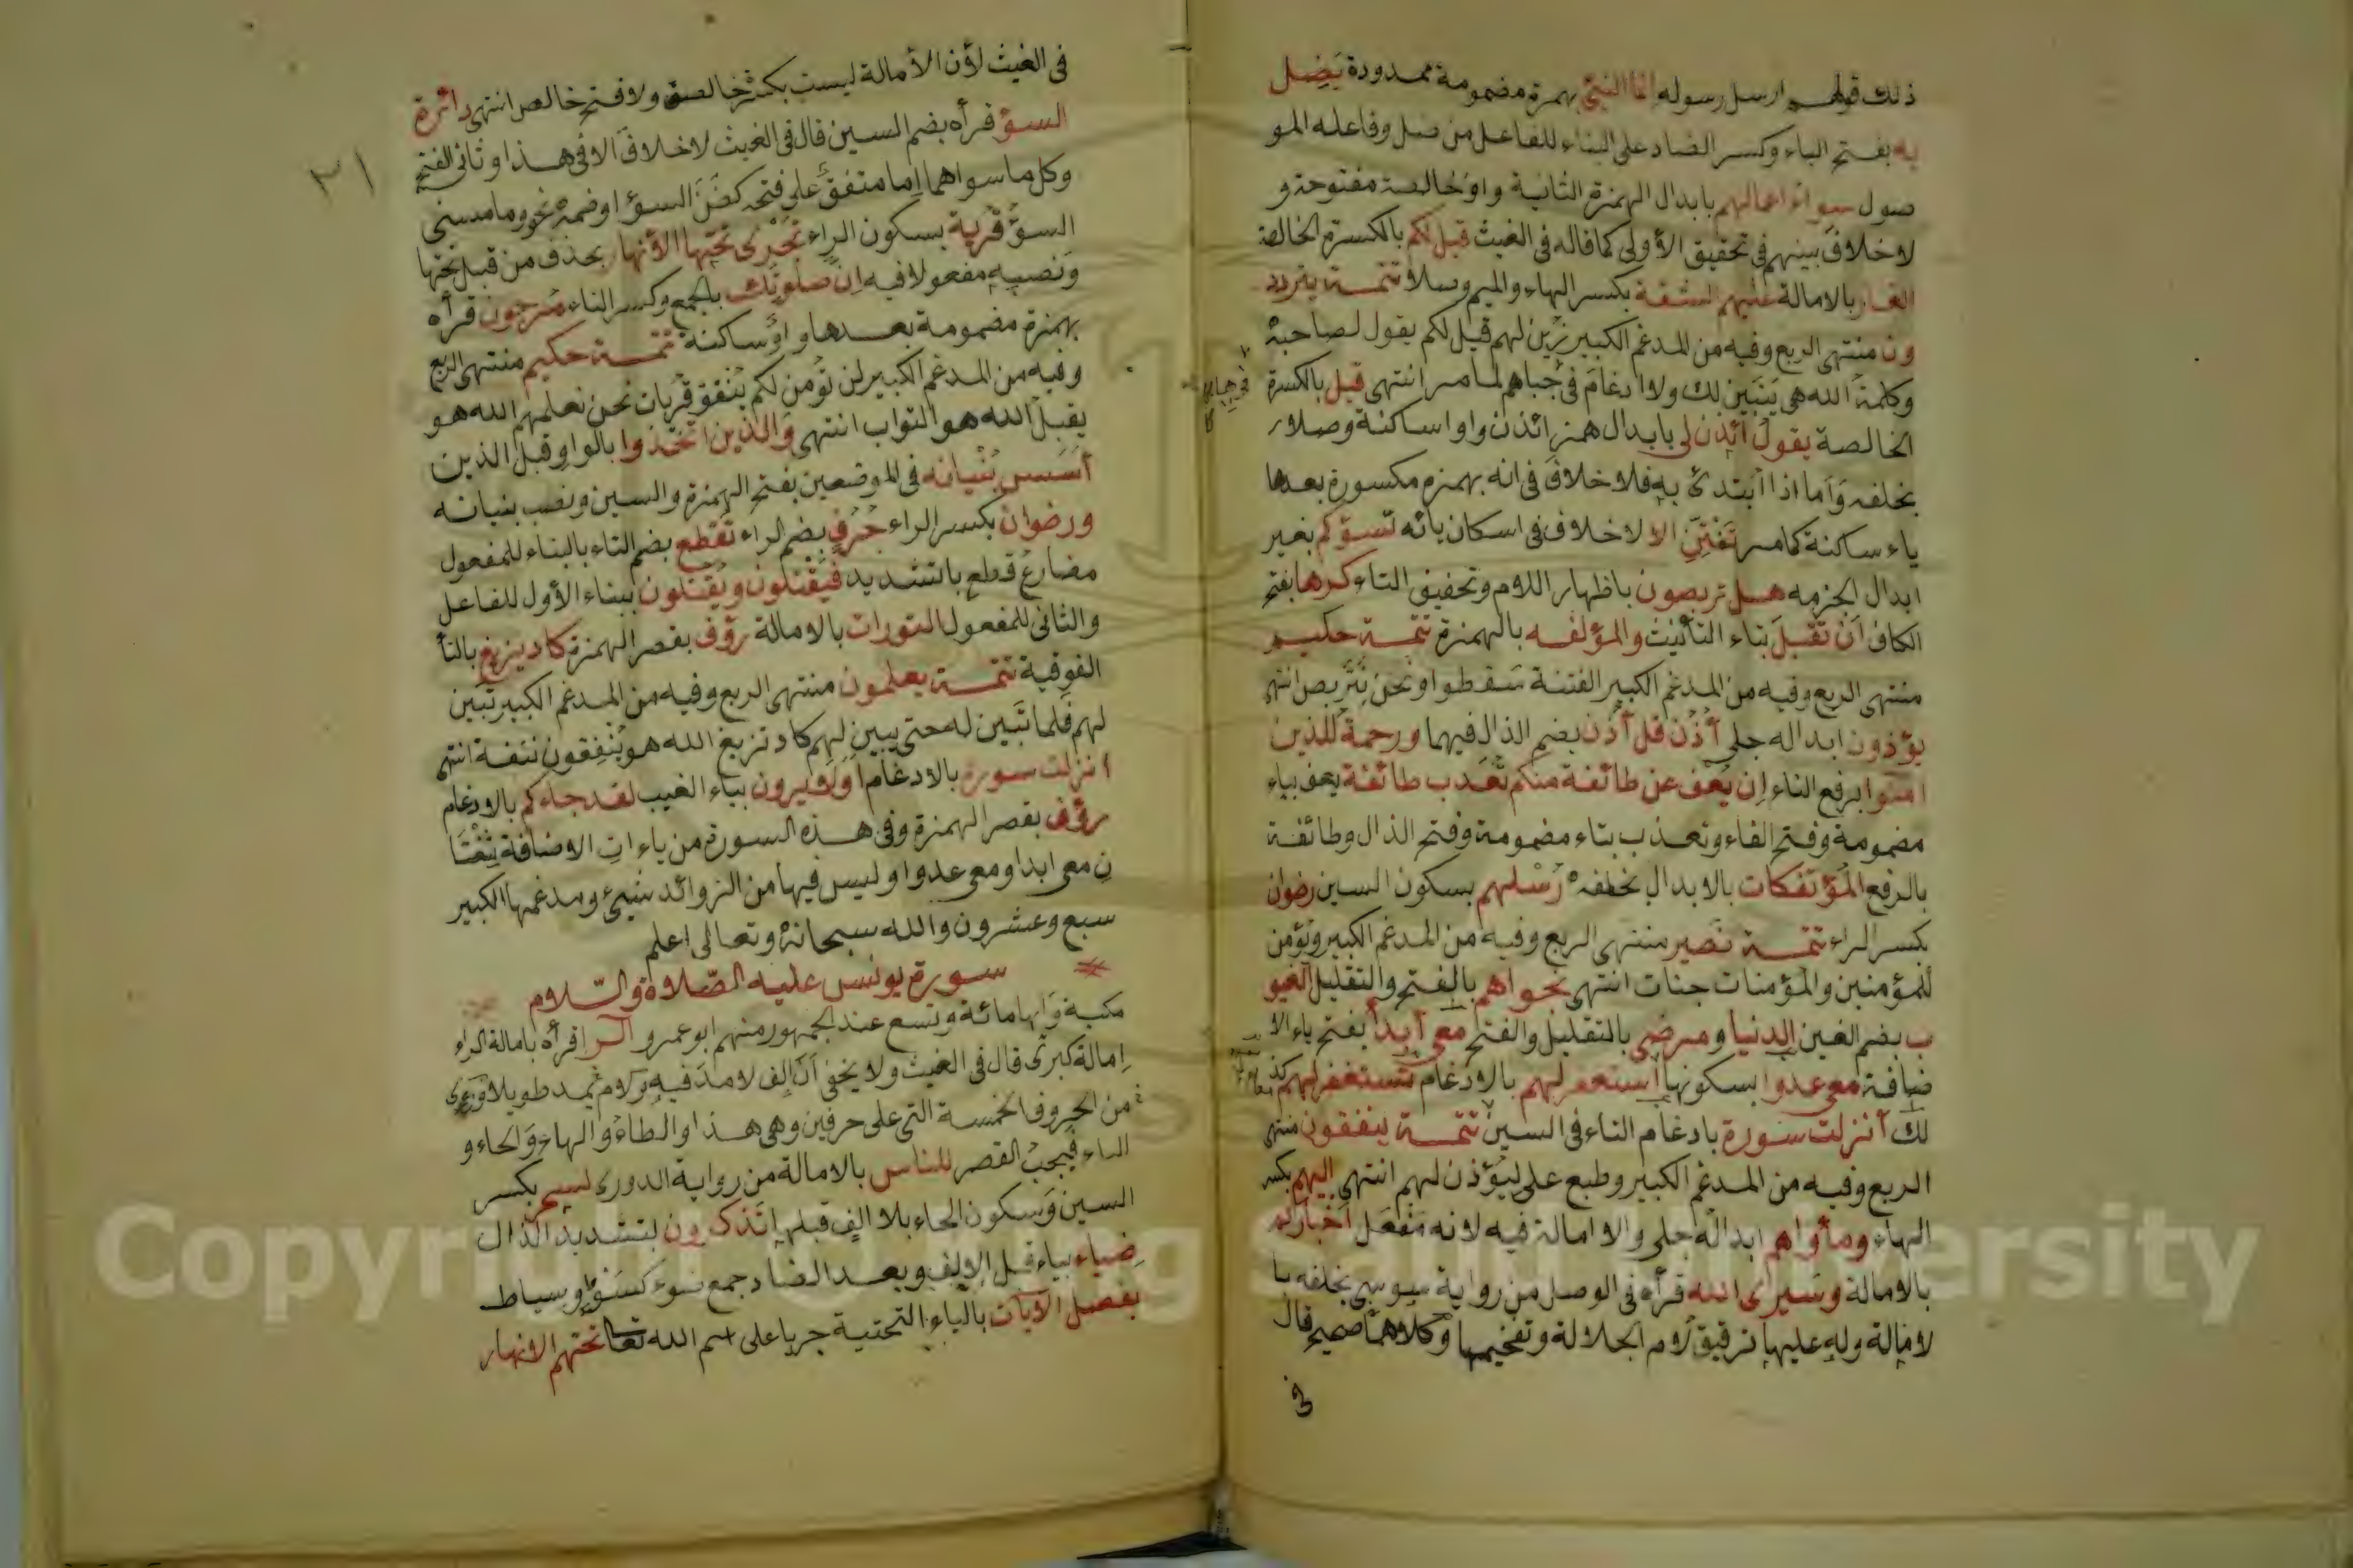 ذلك قولهم ارسل رسوله انما النسئ بهمزة مضمومة ممدودة يضل
به بفتح الياء وكسر الضاد على البناء للفاعل من ضل وفاعله المو
صول سوء اعمالهم بابدال الهمزة الثانية واو خالصة مفتوحة و
لا خلاف بينهم في تحقيق الأولى كما قاله في الغيث قيل لكم بالكسرة الخالصة
الغار بالامالة عليهم الشقة بكسر الهاء والميم وصلا تتمة يتردد
ون منتهى الربع وفيه من المدغم الكبير زين لهم قيل لكم يقول لصاحبه
وكلمة الله هي يتبين لك ولا ادغام في جباههم لما مر انتهى قيل بالكسرة
الخالصة يقول ائذن لي بابدال همز ائذن واوا ساكنة وصلا
بخلفه وأما اذا ابتدئ به فلا خلاف في انه بهمزة مكسورة بعدها
ياء ساكنة كما مر تفتني الا لا خلاف في اسكان يائه تسؤكم بغير
ابدال لجزمه هل تربصون باظهار اللام وتخفيف التاء كرها بفتح
الكاف أن تقبل بتاء التأنيث والمؤلفه بالهمزة تتمة حكيم
منتهى الربع وفيه من المدغم الكبير الفتنة سقطوا ونحن نتربص انتهى
يؤذون ابداله جلي أذن قل أذن بضم الذال فيهما ورحمة للذين
امنوا برفع التاء إن يعف عن طائفة منكم تعذب طائفة يعف بياء
مضمومة وفتح الفاء وتعذب بتاء مضمومة وفتح الذال وطائفة
بالرفع المؤتفكات بالابدال بخلفه رسلهم بسكون السين رضوان
بكسر الراء تتمة نصير منتهى الربع وفيه من المدغم الكبير ونؤمن
للمؤمنين والمؤمنات جنات انتهى نجواهم بالفتح والتقليل الغيو
ب بضم الغين الدنيا ومرضى بالتقليل والفتح معي أبدا بفتح ياء الا
ضافة معي عدوا بسكونها استغفر لهم بالادغام تستغفر لهم كذ
لك أنزلت سورة بادغام التاء في السين تتمة ينفقون منتهى
الربع وفيه من المدغم الكبير وطبع على ليؤذن لهم انتهى إليهم بكسر
الهاء ومأواهم ابداله جلي والا امالة فيه لانه مفعل أخباركم
بالامالة وسيرى الله قرأه في الوصل من رواية سوسي بخلفه با
لامالة وله عليها ترقيق لام الجلالة وتفخيمها وكلاهما صحيح قال
في
٢١
في الغيث لأن الأمالة ليست بكسرة خالصة ولا فتح خالص انتهى دائرة
السوء قرأه بضم السين قال في الغيث لا خلاف الا في هذا وثاني الفتح
وكل ما سواهما إما متفق على فتحه كظن السوء او ضمه نحو وما مسني
السوء قربة بسكون الراء تجري تحتها الأنهار بحذف من قبل تحتها
ونصبه مفعولا فيه إن صلوتك بالجمع وكسر التاء مرجون قرأه
بهمزة مضمومة بعدها واو ساكنة تتمة حكيم منتهى الربع
وفيه من المدغم الكبير لن نؤمن لكم ينفق قربات نحن نعلمهم الله هو
يقبل الله هو التواب انتهى والذين اتخذوا بالواو قبل الذين
أسس بنيانه في الموضعين بفتح الهمزة والسين ونصب بنيانه
ورضوان بكسر الراء جرف بضم الراء تقطع بضم التاء بالبناء للمفعول
مضارع قطع بالتشديد فيقتلون ويقتلون ببناء الأول للفاعل
والثاني للمفعول التورات بالامالة رؤف بقصر الهمزة كاد يزيغ بالتأ
الفوقية تتمة يعلمون منتهى الربع وفيه من المدغم الكبير تبين
لهم فلما تبين له حتى يبين لهم كاد تزيغ الله هو ينفقون نفقة انتهى
انزلت سورة بالادغام أولا يرون بياء الغيب لقد جاءكم بالادغام
رؤف بقصر الهمزة وفي هذه السورة من ياءات الاضافة ثنتا
ن معي ابدا ومعي عدوا وليس فيها من الزوائد شيئ ومدغمها الكبير
سبع وعشرون والله سبحانه وتعالى اعلم
سورة يونس عليه الصلاة والسلام
مكية وآيها مائة وتسع عند الجمهور منهم ابو عمرو الر قرأه بامالة الراء
إمالة كبرى قال في الغيث ولا يخفى أن ألف لا مد فيه ولام يمد طويلا
من الحروف الخمسة التي على حرفين وهي هذا والطاء والهاء والحاء و
الياء فيجب القصر للناس بالامالة من رواية الدوري لسحر بكسر
السين وسكون الحاء بلا الف قبلها تذكرون بتشديد الذال
ضياء بياء قبل الالف وبعد الضاد جمع ضوء كسوط وسياط
يفصل الآيات بالياء التحتية جريا على اسم الله تعا تحتهم الانهار
Copyright © King Saud University